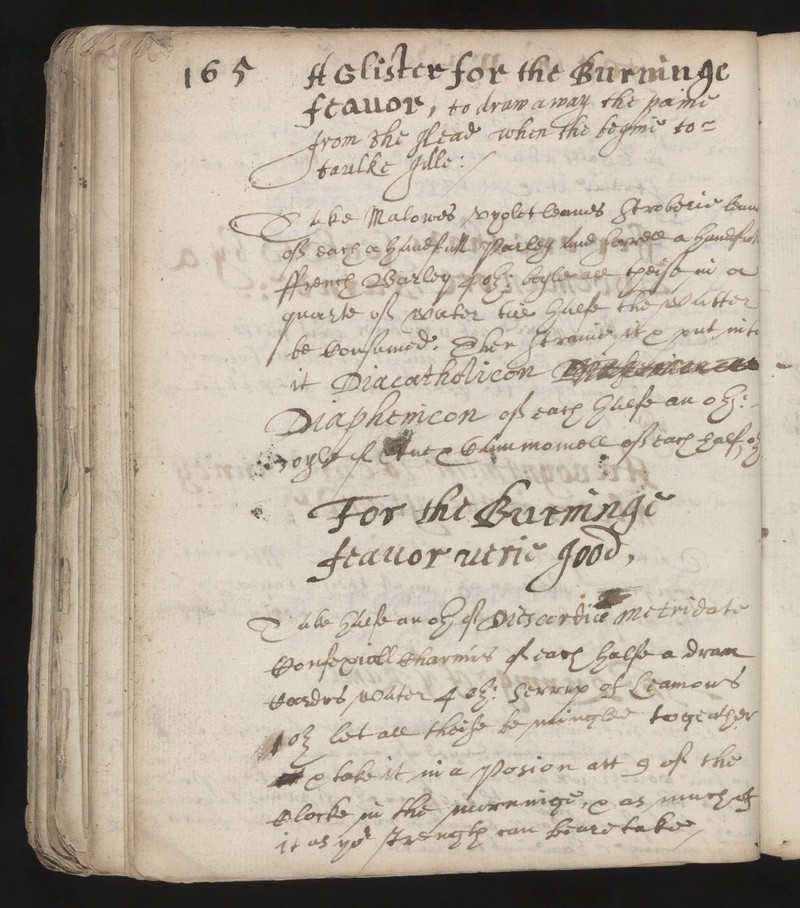 165
A Glister for the Burninge
feauor, to draw away the paine
from the Head when the begine to=
taulke Idle:
Take Malowes vyolet leaues Stroberie leau
off each a handfull Parley and Sorrell a handfull
ffrench Barley 4 oz: boyle all theise in a
quarte off water till halfe the watter
be Consumed. Then straine it & put into
it Diacatholicon
Diaphenicon off each halfe an oz:
oyle of Rue & Cammomell off each half oz
For the Burninge
feauor uerie good,
Take halfe an oz of Dioscordiu metridate
Confexioll Charmis of each halfe a dram
Cardus water 4 oz: Serrup of Leamons
1 oz let all theise be mingled togeather
& take it in a Posion att 9 of the
Clocke in the morninge, & as much off
it as yor strength can beare take